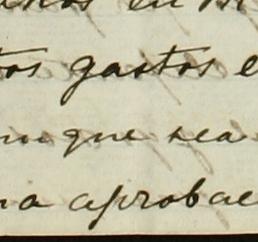 en
tos gastos e
que sea
na aprobac